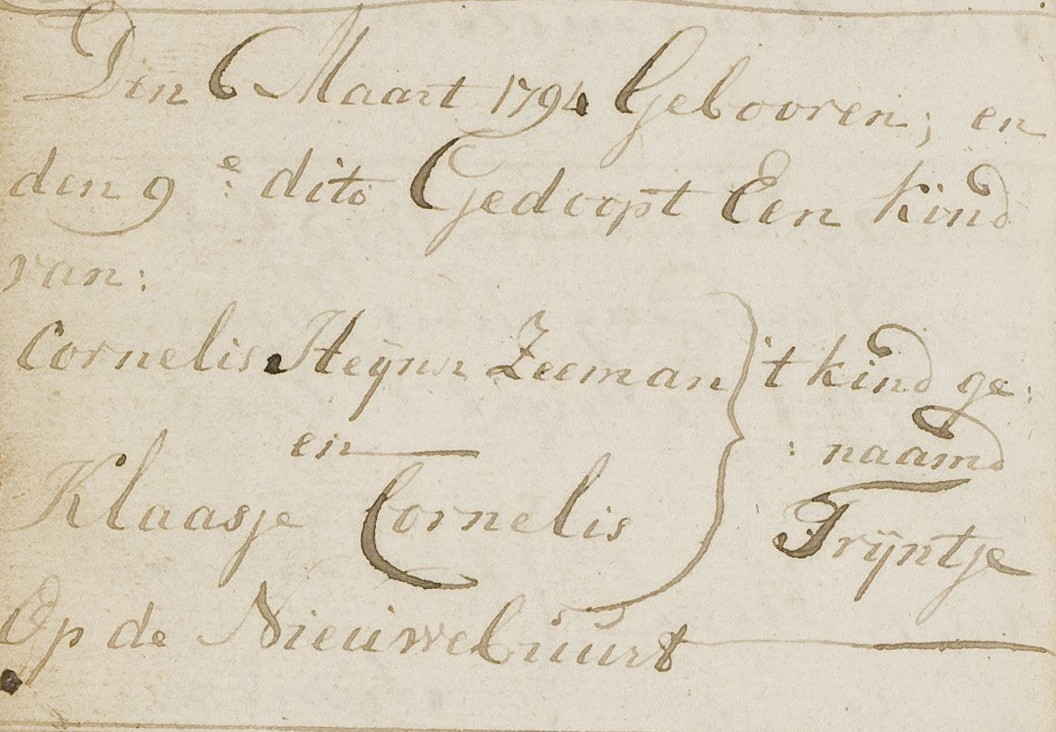 Den 6 Maart 1794 Gebooren; en
den 9e: dito Gedoopt Een kind
van:
Cornelis Heijnn Zeeman 't kind ge:
en : naamd
Klaasje Cornelis Trijntje
Op de Nieuwebuurt